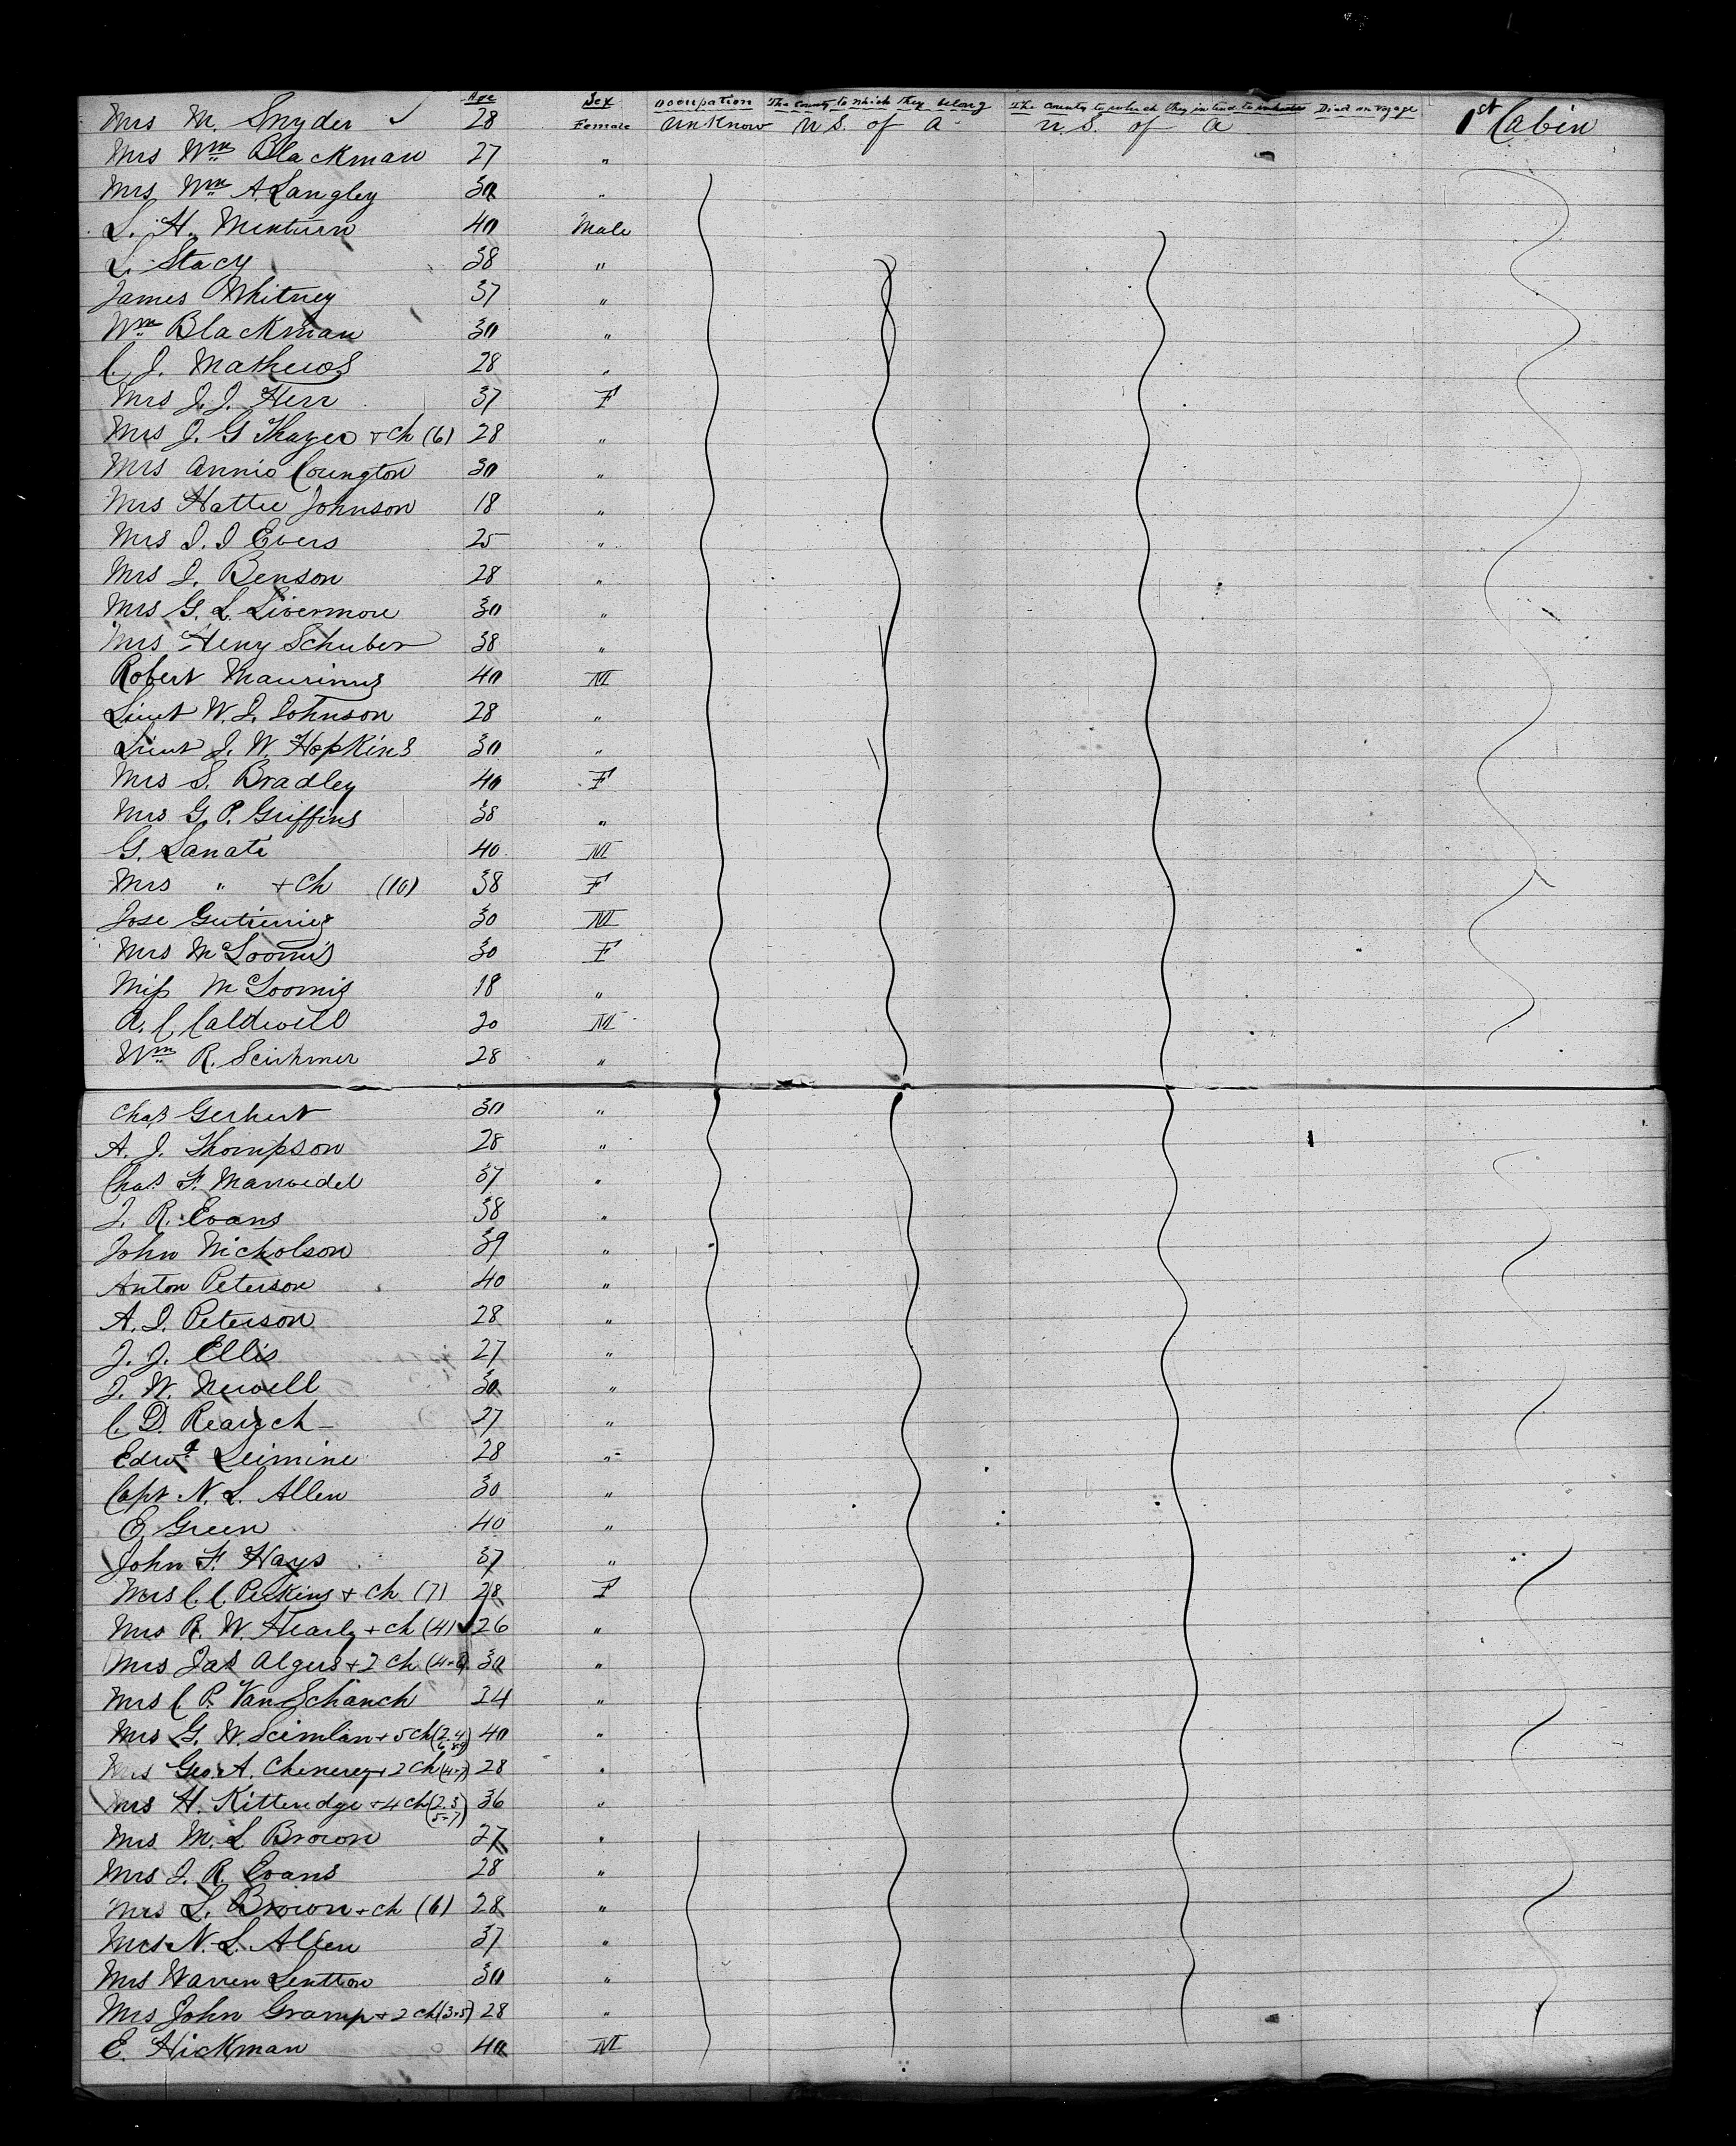 Age Sex Occupation The County to which they belong The County to which they intend to Died on voyage
Mrs M. Snyder ✓ 28 Female Unknow U.S. of A U.S. of A 1st Cabin
Mrs Wm Blackman 27 "
Mrs Wm A. Langley 30 "
L. H. Minturn 40 Male
L. Stacy 38 "
James Whitney 37 "
Wm Blackman 30 "
C. J. Mathews 28 "
Mrs J. J. Herr 37 F
Mrs J. G Thayer + Ch (6) 28 "
Mrs Annie Covington 30 "
Mrs Hattie Johnson 18 "
Mrs I. I Evers 25 "
Mrs I. Benson 28 "
Mrs G. L. Livermore 30 "
Mrs Heny Schuber 38 "
Robert 40 M
Lieut W. J. Johnson 28 "
Lieut J. W. Hopkins 30 "
Mrs S. Bradley 40 F
Mrs G. P. Griffins 38 "
G. Lanate 40 M
Mrs " + Ch (10) 38 F
Jose Gutierriez 30 M
Mrs McLoomis 30 F
Miss McLoomis 18 "
A. C. Caldwell 30 M
Wm R. 28 "
Chas Gerhert 30 "
A. J. Thompson 28 "
Chas F. Marwedel 37 "
J. R. Evans 38 "
John Nicholson 39 "
Anton Peterson 40 "
A. I. Peterson 28 "
J. J. Ellis 27 "
J. W. Newell 30 "
C. D. 27 "
Edwd Leimine 28 "
Capt N. L. Allen 30 "
E. Green 40 "
John F. Hays 37 "
Mrs C. C. Perkins + Ch (7) 28 F
Mrs R. W. Hearly + Ch (4) 26 "
Mrs Jas Algers + 2 Ch (4-6) 30 "
Mrs C. P. VanSchanch 24 "
Mrs G. W. Scimlan + 5 Ch (2.4 6 8-9) 40 "
Mrs Geo. A. Chenerey + 2 Ch (4-7) 28 "
Mrs H. Kitteridge + 4 Ch (2.3 5-7) 36 "
Mrs M. L Brown 27 "
Mrs J. R. Evans 28 "
Mrs L. Brown + Ch (6) 28 "
Mrs N. L. Allen 37 "
Mrs Warren Lentton 30 "
Mrs John Gramp + 2 Ch (3-5) 28 "
E. Hickman 40 M